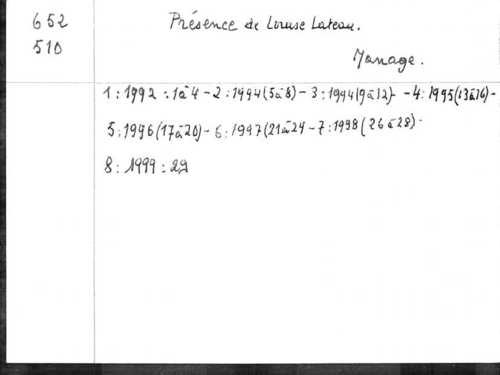 652
510
Présence de Louise Lateau.
Manage.
1 : 1992 : 1à4 - 2 : 1994 (5à8) - 3 : 1994 (9à12) - 4 : 1995 (13à16) -
5 : 1996 (17à20) - 6 : 1997 (21à24 - 7 : 1998 (26à28) -
8 : 1999 : 29